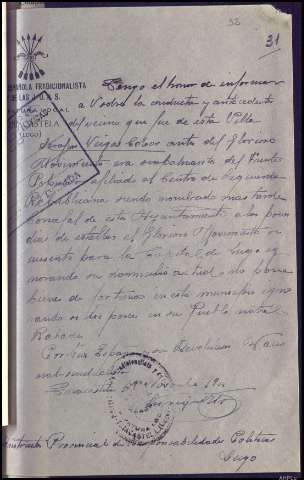 32
31
ESPAÑOLA TRADICIONALISTA
DE LAS J.O.N.S.
JEFATURA LOCAL
(LUGO)
Tengo el honor de informar
a Vd sobre la conducta y antecedentes
del vecino que fue de esta Villa
Veiga antes del Glorioso
Movimiento era simpatizante del Frente
Popular afiliado al Centro de Izquierda
Republicana siendo nombrado mas tarde
concejal de este Ayuntamiento a los pocos
dias de estallar el Glorioso Movimiento se
ausentó para la Capital de Lugo ig
norando su domicilio actual. No posee
bienes de fortuna en este municipio igno
rando si los posee en su Pueblo natal
Rabade
Por Dios España y su Revolucion Nacio
nal-sindicalista
Provincial de Responsabilidades Politicas
Lugo